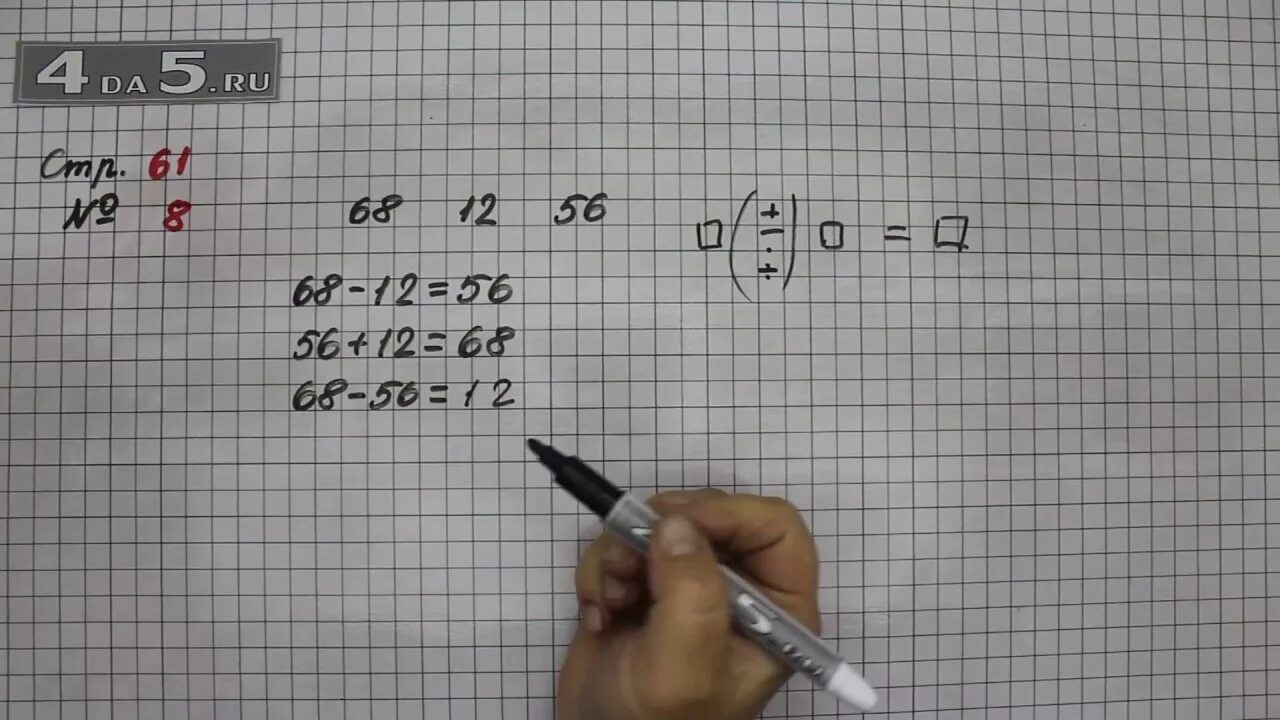 4DA5.RU
Стр. 61
№ 8
68 12 56
□ (+ − · ÷) □ = □
68-12=56
56+12=68
68-56=12